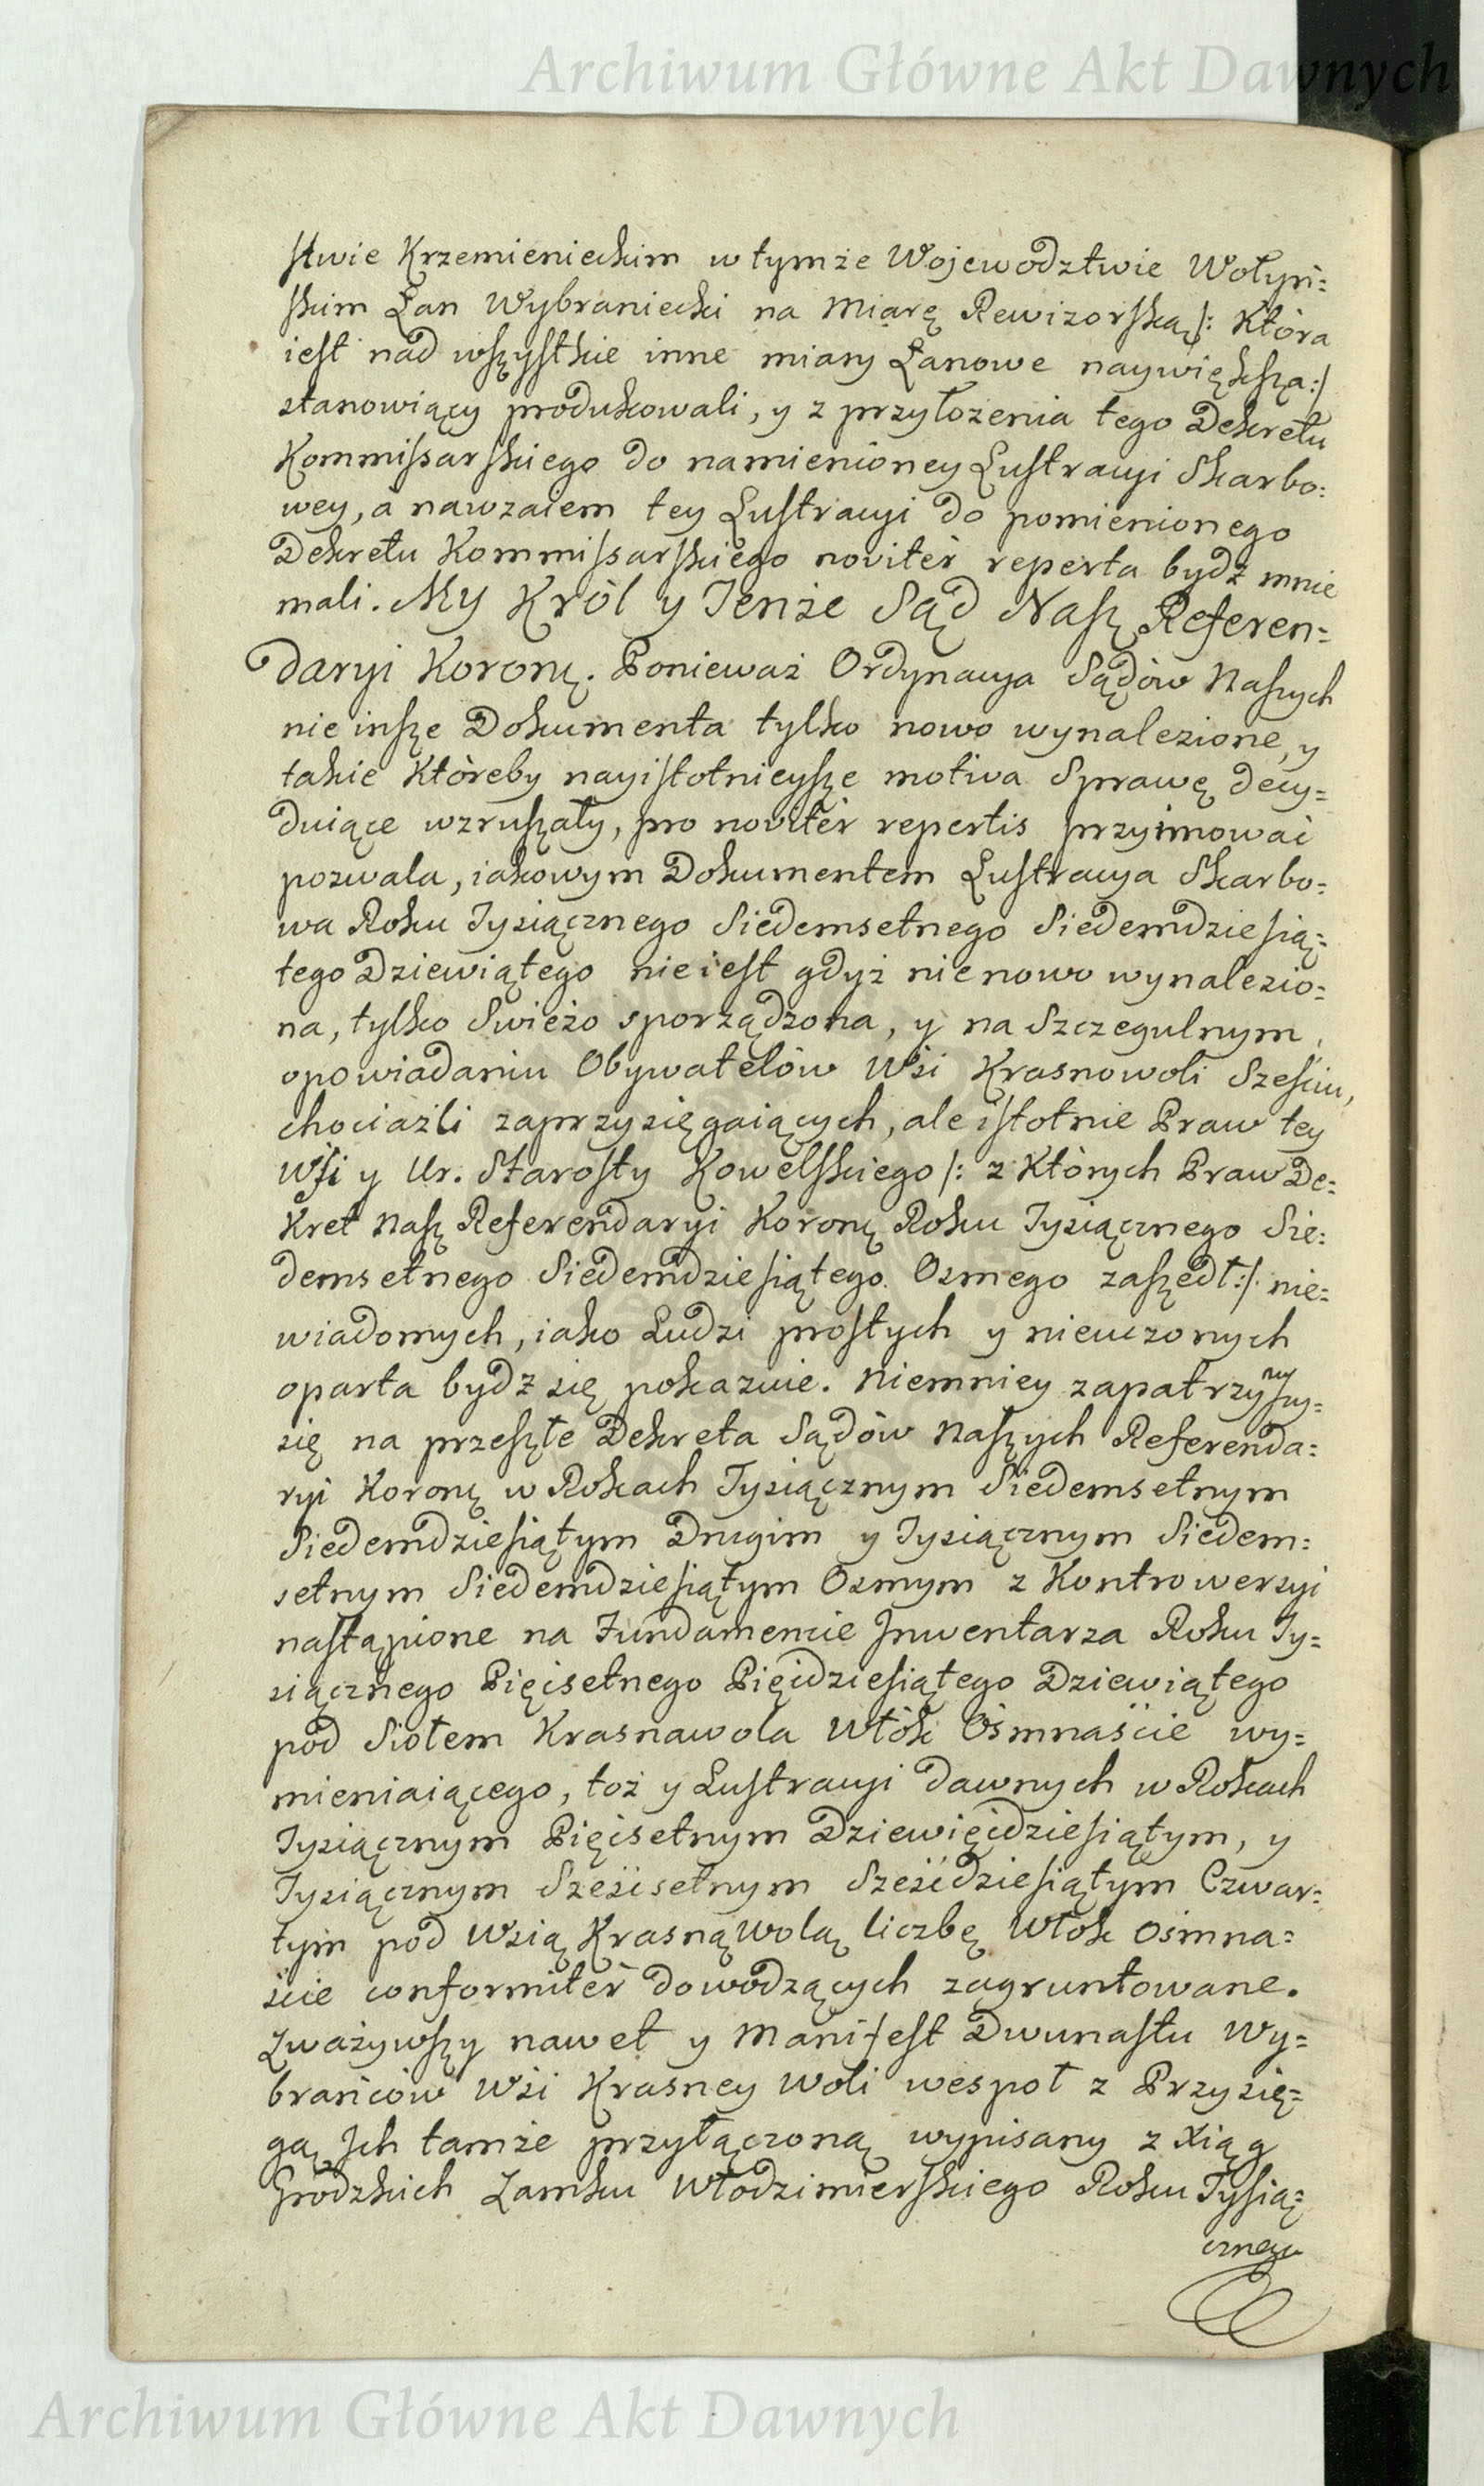 Archiwum Główne Akt Dawnych
stwie Krzemienieckim w tymże Wojewodztwie Wołyń=
skim Łan Wybraniecki na Miarę Rewizorską /: Która
iest nad wszystkie inne miary Łanowe naywiększa :/
stanowiący produkowali, y z przyłożenia tego Dekretu
Kommissarskiego do namienioney Lustracyi Skarbo=
wey, a nawzaiem tey Lustracyi do pomienionego
Dekretu Kommissarskiego noviter reperta bydź mnie
mali. My Król y Tenże Sąd Nasz Referen=
daryi Koronę. Ponieważ Ordynacya Sądów Naszych
nie insze Dokumenta tylko nowo wynalezione, y
takie Któreby nayistotnieysze motiva Sprawę decy=
duiące wzruszały, pro noviter repertis przyimować
pozwala, iakowym Dokumentem Lustracya Skarbo=
wa Roku Tysiącznego Siedemsetnego Siedemdziesią=
tego Dziewiątego nie iest gdyż nie nowo wynalezio=
na, tylko Swieżo sporządzona, y na Szczegulnym
opowiadaniu Obywatelów Wsi Krasnowoli Sześciu,
chociażli zaprzysięgaiących, ale istotnie Praw tey
Wsi y Ur. Starosty Kowelskiego /: z Których Praw De=
Kret Nasz Referendaryi Koronę Roku Tysiącznego Sie=
demsetnego Siedemdziesiątego Osmego zaszedł :/ nie=
wiadomych, iako Ludzi prostych y nieuczonych
oparta bydź się pokazuie. Niemniey zapatrzywszy=
się na przeszłe Dekreta Sądów Naszych Referenda=
ryi Koronę w Rokach Tysiącznym Siedemsetnym
Siedemdziesiątym Drugim y Tysiącznym Siedem=
setnym Siedemdziesiątym Osmym z Kontrowersyi
nastąpione na Fundamencie Jnwentarza Roku Ty=
siącznego Pięćsetnego Pięćdziesiątego Dziewiątego
pod Siołem Krasnawola Włók Ośmnaście wy=
mieniaiącego, toż y Lustracyi dawnych w Rokach
Tysiącznym Pięćsetnym Dziewięćdziesiątym, y
Tysiącznym Sześćsetnym Sześćdziesiątym Czwar=
tym pod Wsią Krasną Wolą liczbę Włók ośmna=
ście conformiter dowodzących zagruntowane.
Zważywszy nawet y Manifest Dwunastu Wy=
brańców Wsi Krasney Woli wespoł z Przysię=
gą Jch tamże przyłączoną wypisany z Xiąg
Grodzkich Zamku Włodzimierskiego Roku Tysią=
cznego
Archiwum Główne Akt Dawnych